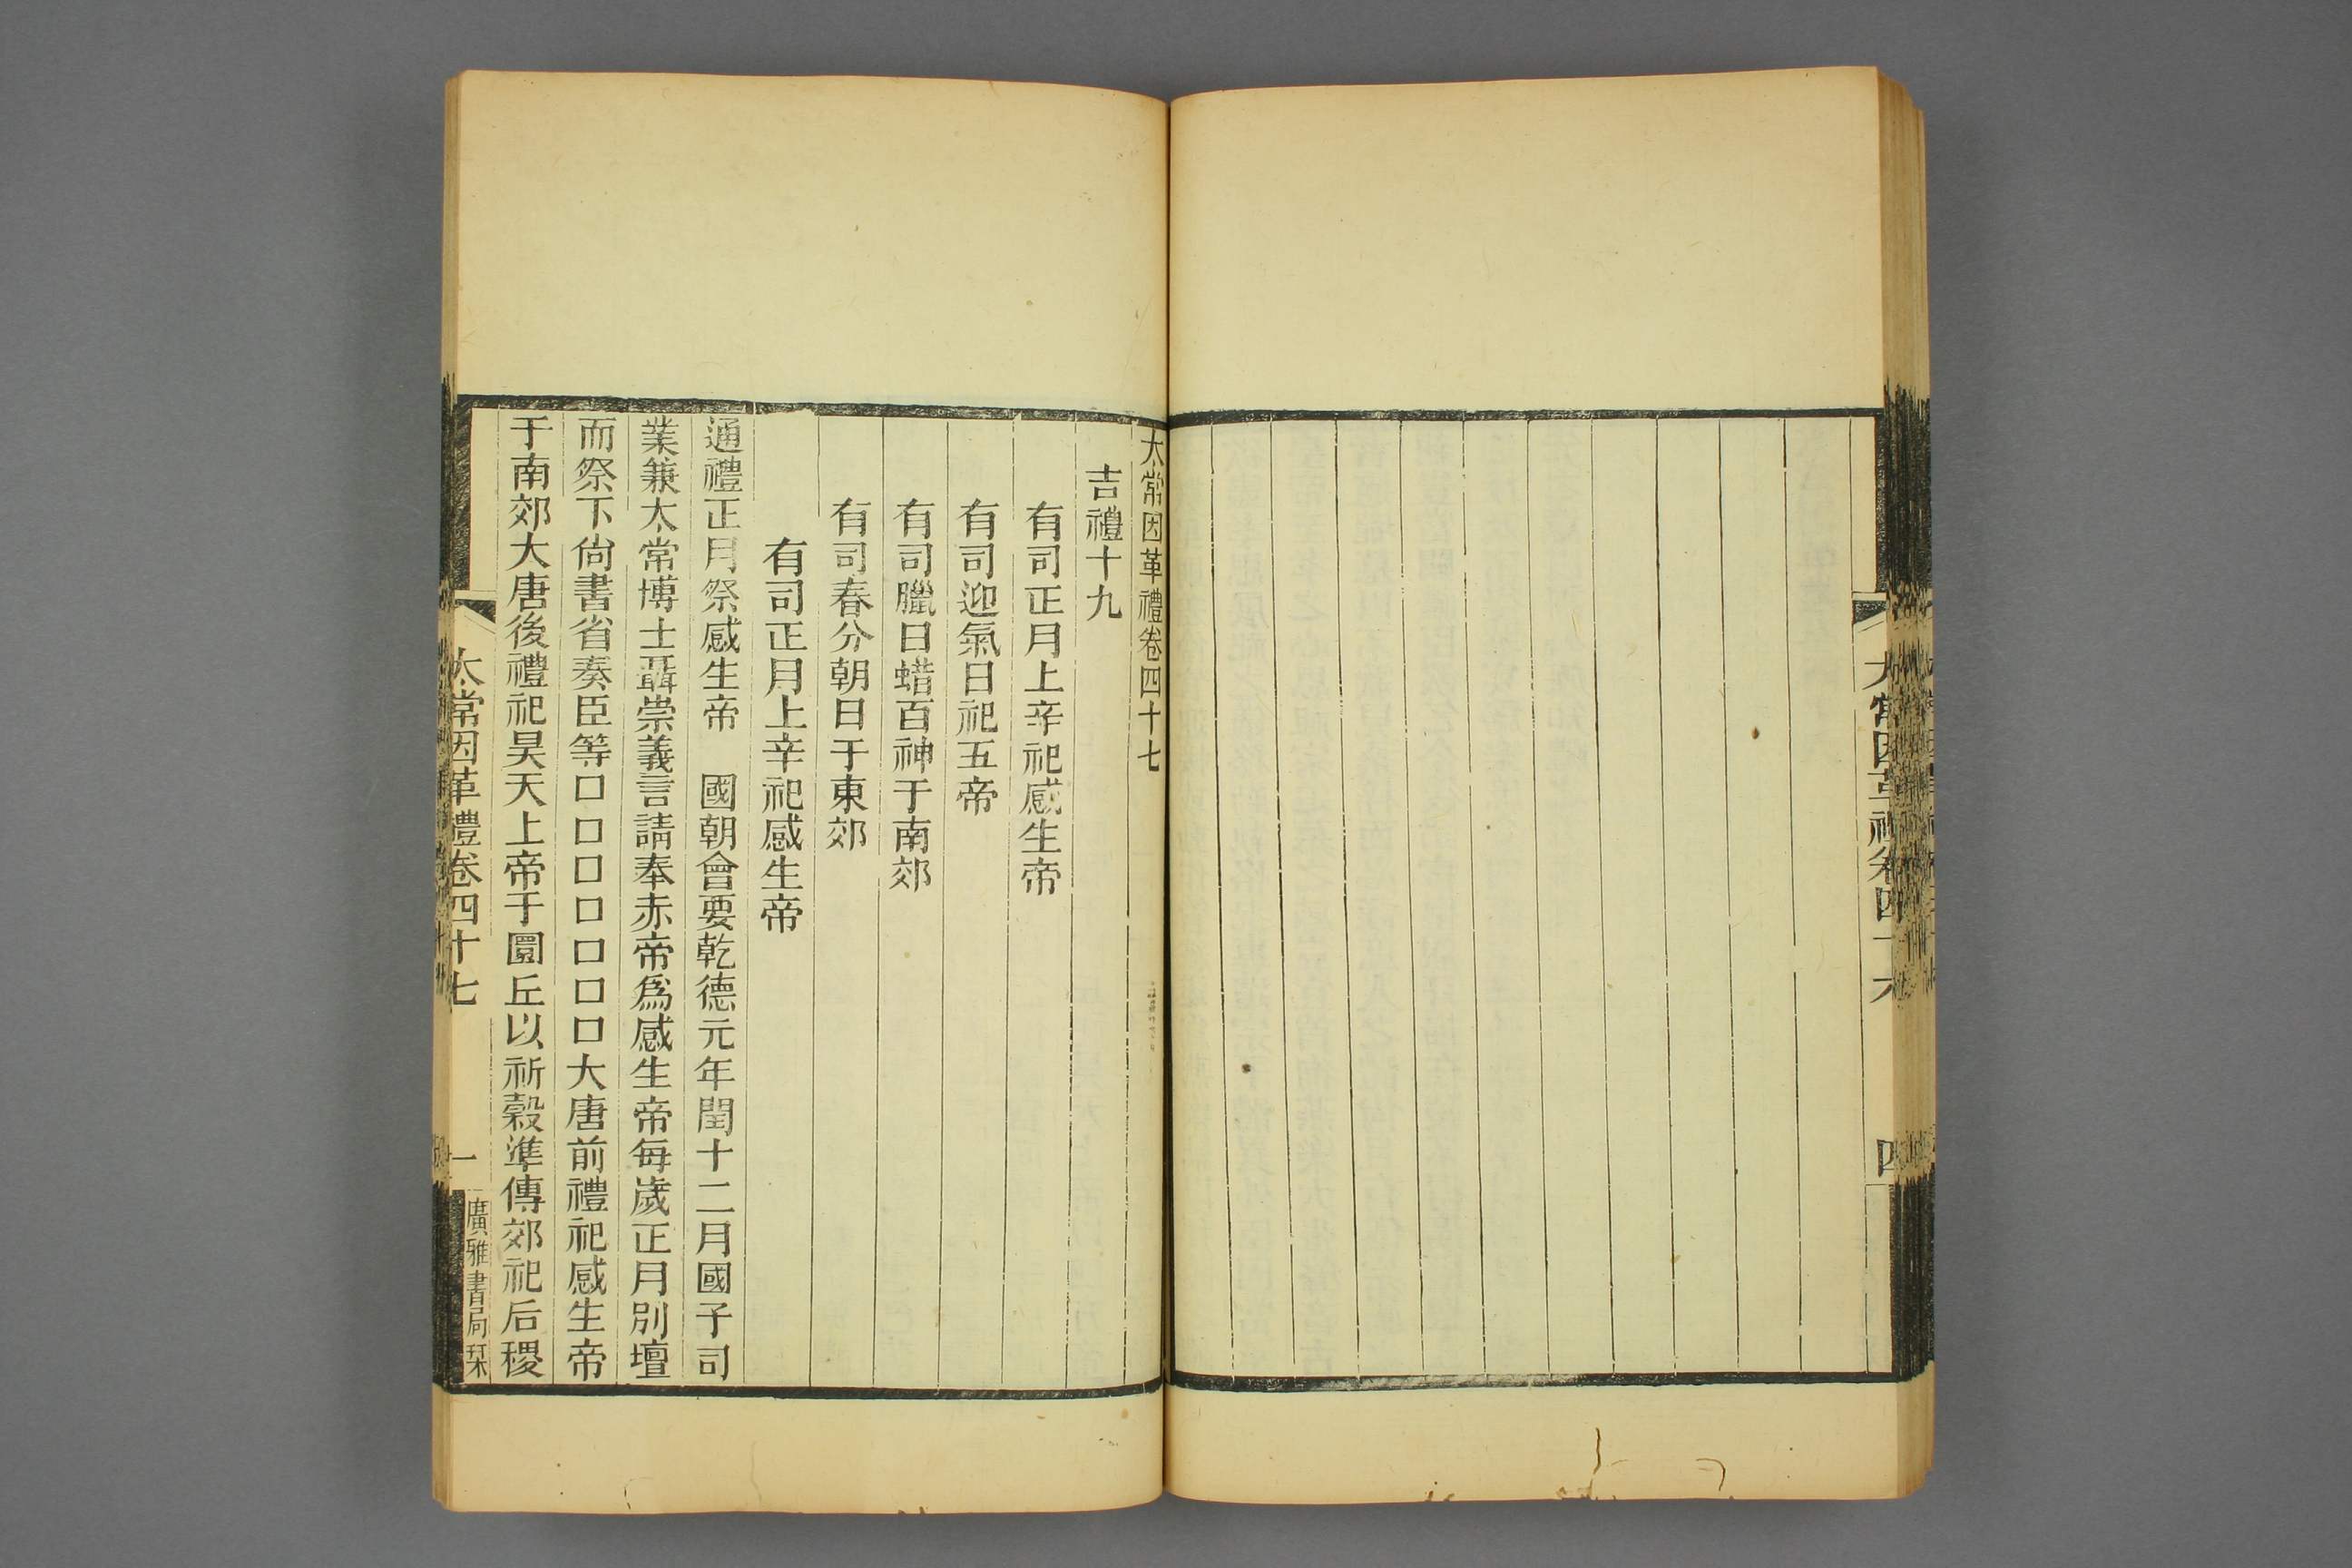 太常因革禮卷四十六
四
太常因革禮卷四十七
吉禮十九
有司正月上辛祀感生帝
有司迎氣日祀五帝
有司臘日蜡百神于南郊
有司春分朝日于東郊
有司正月上辛祀感生帝
通禮正月祭感生帝　國朝會要乾德元年閏十二月國子司
業兼太常博士聶崇義言請奉赤帝爲感生帝每歲正月別壇
而祭下尙書省奏臣等口口口口口口口大唐前禮祀感生帝
于南郊大唐後禮祀昊天上帝于圜丘以祈穀準傳郊祀后稷
太常因革禮卷四十七
一
廣雅書局栞